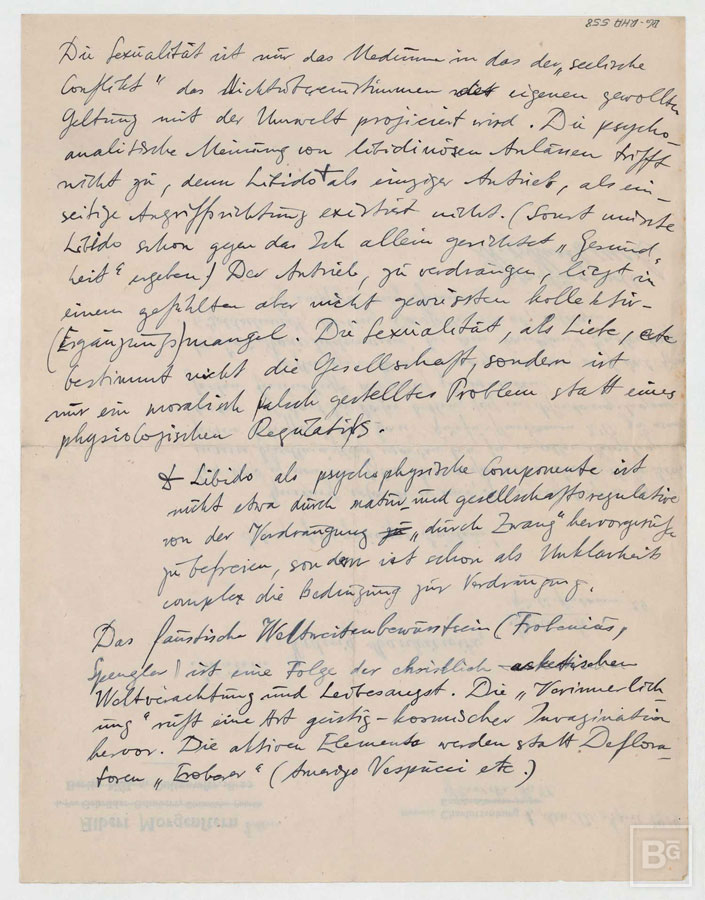 BG-AHA 558
Die Sexualität ist nur das Medium in das der „seelische
Conflikt“ das Nichtübereinstimmen der eigenen gewollten
Geltung mit der Umwelt projiciert wird. Die psycho-
analitische Meinung von libidinösen Anlässen trifft
nicht zu, denn Libido + als einziger Antrieb, als ein-
seitige Angriffsrichtung existiert nicht. (Sonst müsste
Libido schon gegen das Ich allein gerichtet „Gesund-
heit“ ergeben.) Der Antrieb, zu verdrängen, liegt in
einem gefühlten aber nicht gewussten kollektiv-
(Ergänzungs)mangel. Die Sexualität, als Liebe, etc
bestimmt nicht die Gesellschaft, sondern ist
nur ein moralisch falsch gestelltes Problem statt eines
physiologischen Regulativs.
+ Libido als psychophysische Componente ist
nicht etwa durch natur- und gesellschaftsregulative
von der Verdrängung zu „durch Zwang“ hervorgerufen
zu befreien, sondern ist schon als Unklarheits
complex die Bedingung zur Verdrängung.
Das faustische Weltweitenbewusstsein (Frobenius,
Spengler) ist eine Folge der christlich-asketischen
Weltverachtung und Leibesangst. Die „Verinnerlich-
ung“ ruft eine Art geistig-kosmischer Invagination
hervor. Die aktiven Elemente werden statt Deflora-
toren „Eroberer“ (Amerigo Vespucci etc.)
Albert Morgenstern
BG